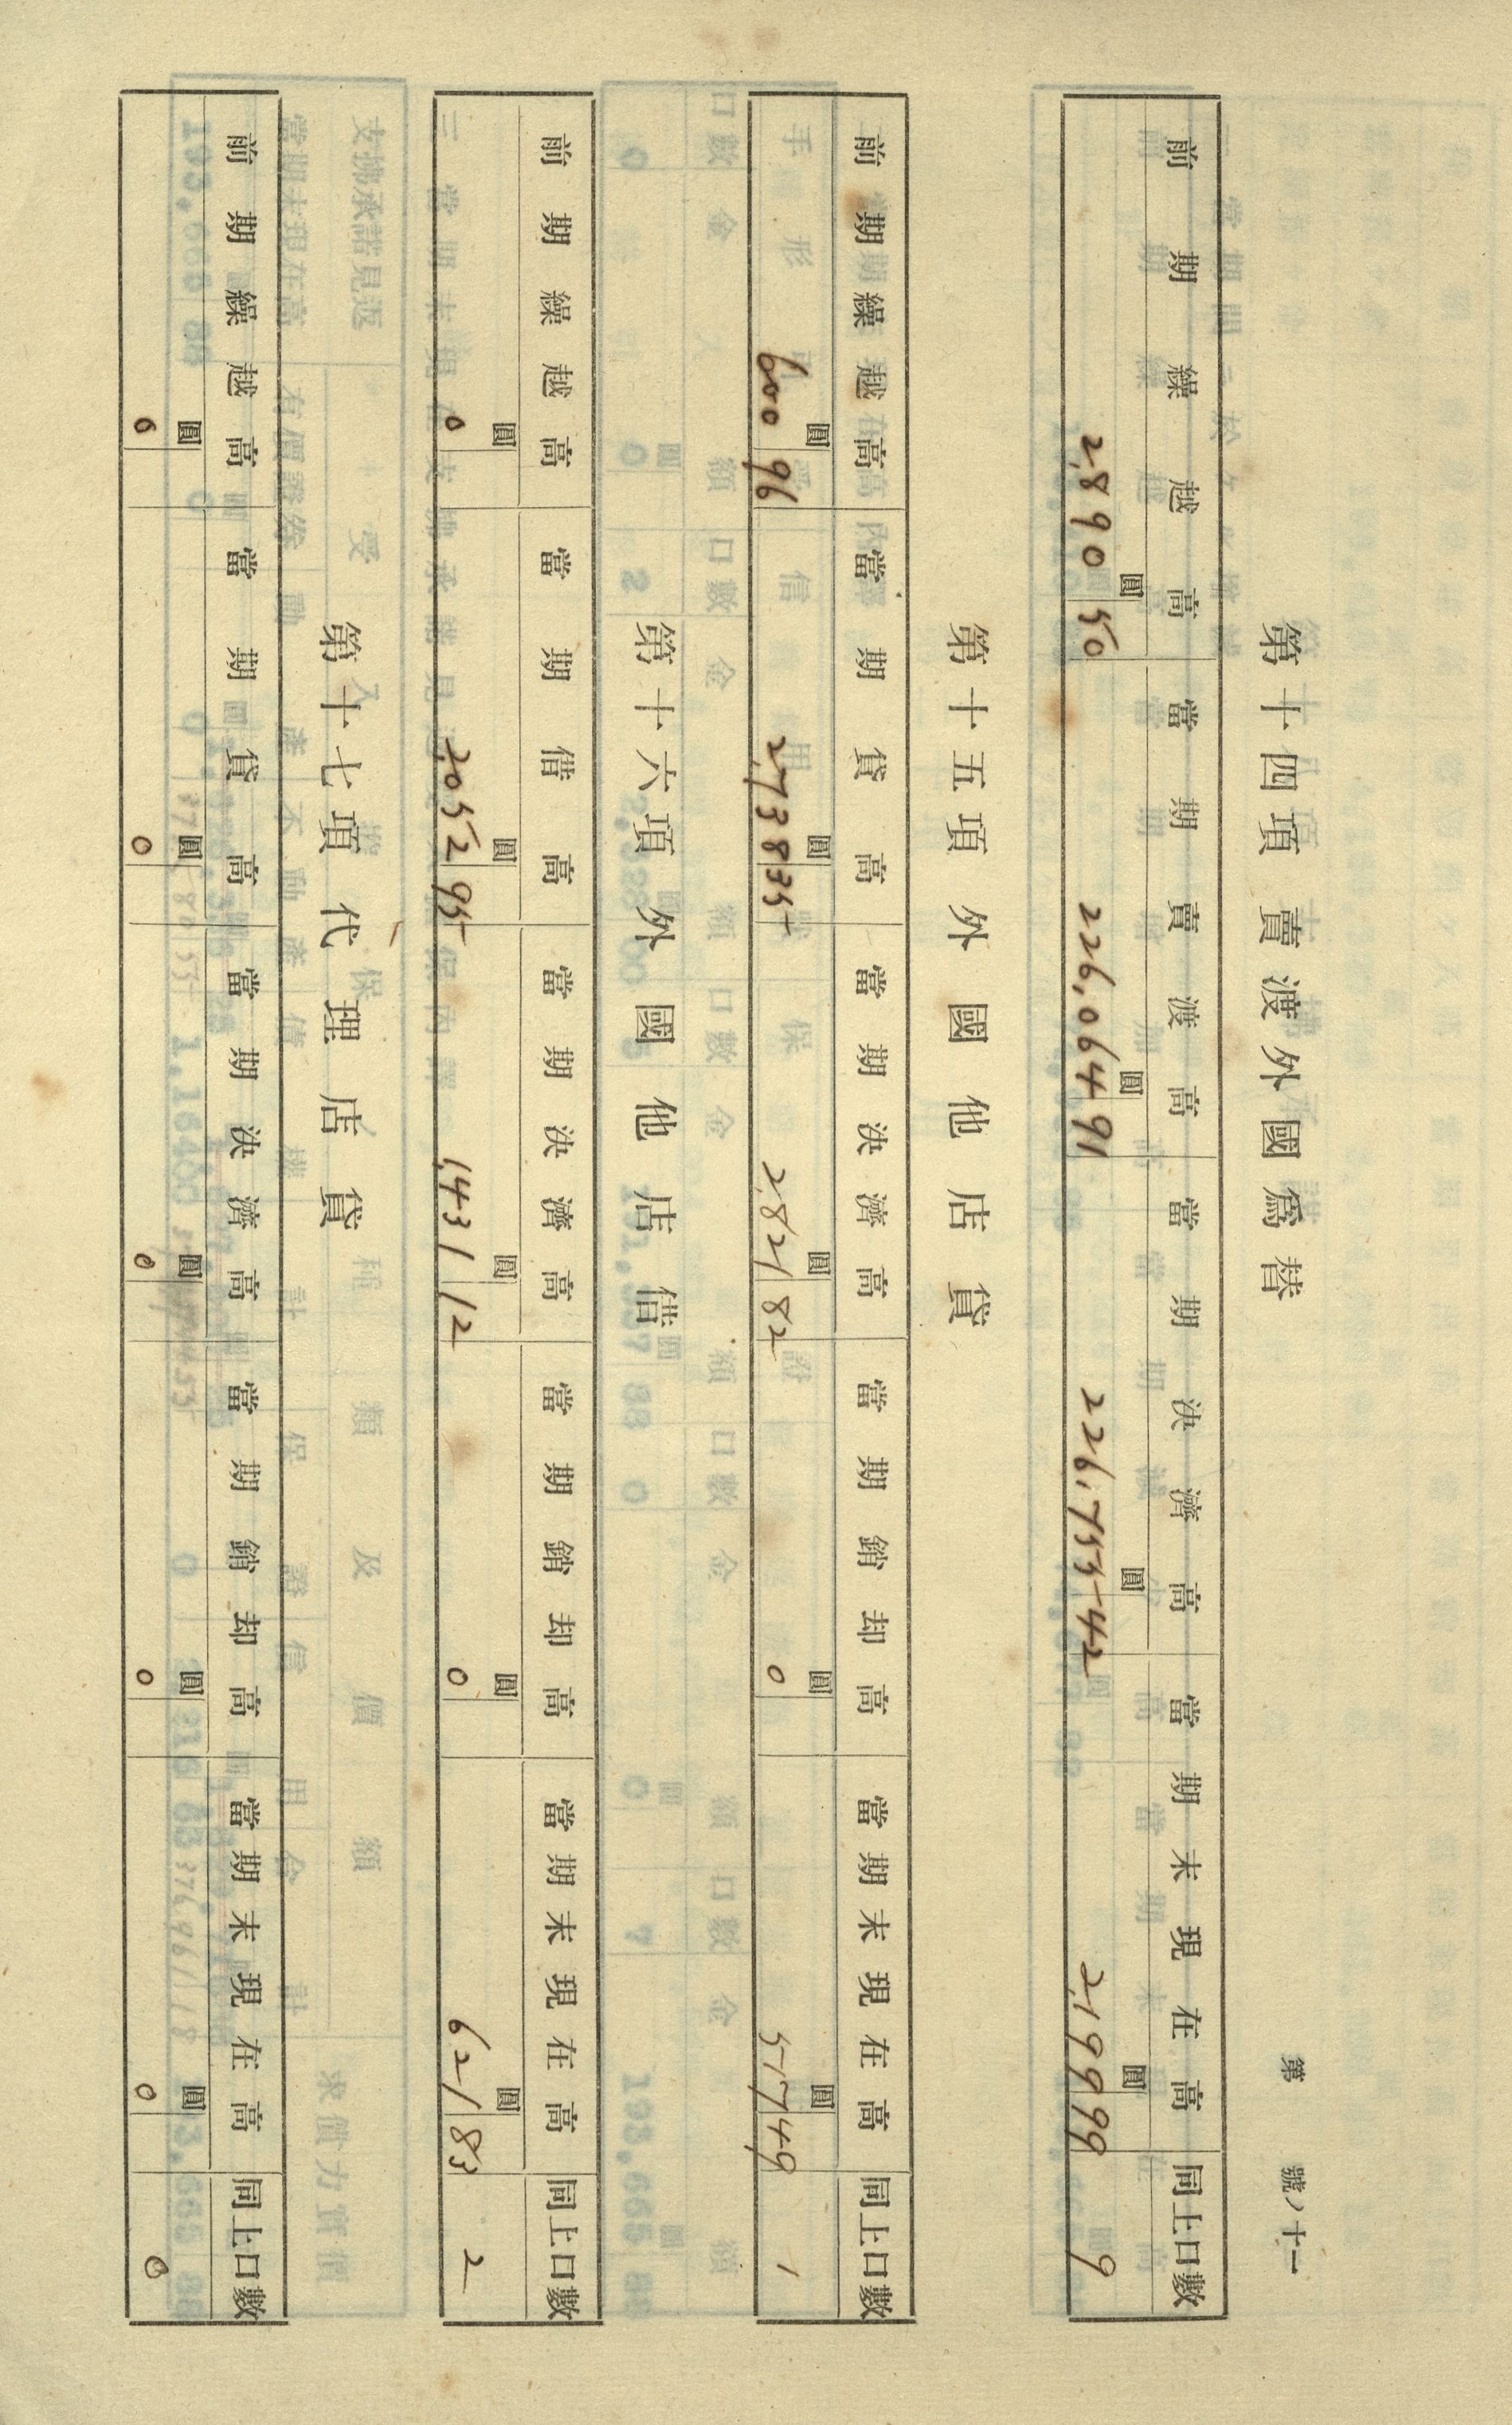 第　號ノ十一
第十四項 賣渡外國爲替
前期繰越高 當期賣渡高 當期決濟高 當期末現在高 同上口數
圓 圓 圓 圓
2,890 50 226,064 91 226,755 42 2,199 99 9
第十五項 外國他店貸
前期繰越高 當期貸高 當期決濟高 當期銷却高 當期末現在高 同上口數
圓 圓 圓 圓 圓
600 96 2,738 35 2,821 82 0 517 49 1
第十六項 外國他店借
前期繰越高 當期借高 當期決濟高 當期銷却高 當期末現在高 同上口數
圓 圓 圓 圓 圓
0 2,052 95 1,431 12 0 621 83 2
第十七項 代理店貸
前期繰越高 當期貸高 當期決濟高 當期銷却高 當期末現在高 同上口數
圓 圓 圓 圓 圓
0 0 0 0 0 0